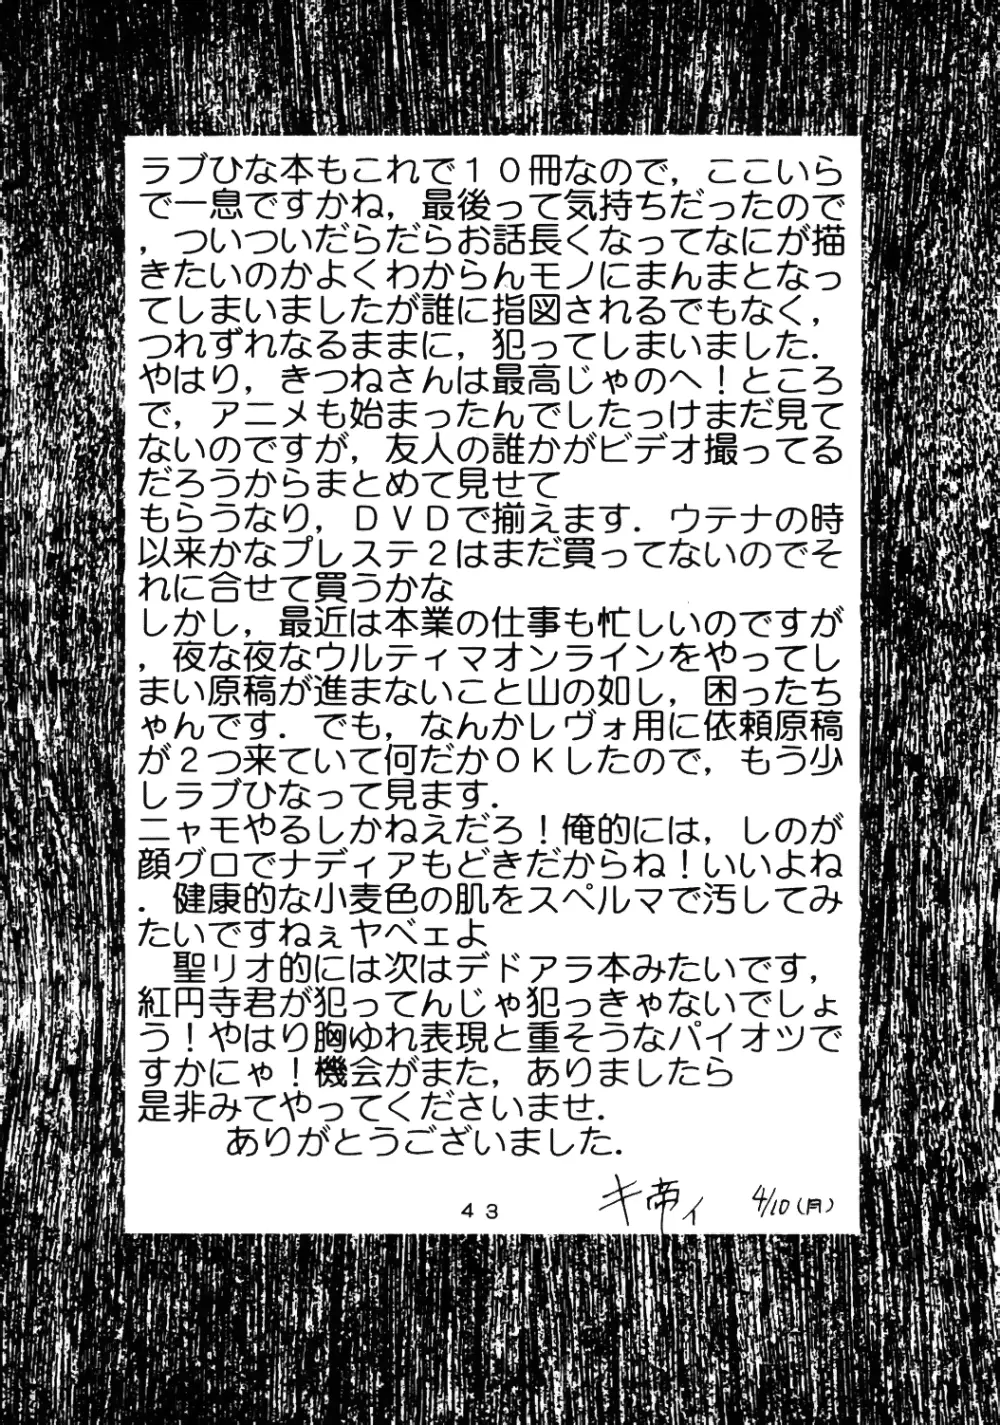 ラブひな本もこれで１０冊なので，ここいら
で一息ですかね，最後って気持ちだったので
，ついついだらだらお話長くなってなにが描
きたいのかよくわからんモノにまんまとなっ
てしまいましたが誰に指図されるでもなく，
つれずれなるままに，犯ってしまいました．
やはり，きつねさんは最高じゃのへ！ところ
で，アニメも始まったんでしたっけまだ見て
ないのですが，友人の誰かがビデオ撮ってる
だろうからまとめて見せて
もらうなり，ＤＶＤで揃えます．ウテナの時
以来かなプレステ２はまだ買ってないのでそ
れに合せて買うかな
しかし，最近は本業の仕事も忙しいのですが
，夜な夜なウルティマオンラインをやってし
まい原稿が進まないこと山の如し，困ったち
ゃんです．でも，なんかレヴォ用に依頼原稿
が２つ来ていて何だかＯＫしたので，もう少
しラブひなって見ます．
　聖リオ的には次はデドアラ本みたいです，
紅円寺君が犯ってんじゃ犯っきゃないでしょ
う！やはり胸ゆれ表現と重そうなパイオツで
すかにゃ！機会がまた，ありましたら
是非みてやってくださいませ．
ありがとうございました．
4/10(月)
４３